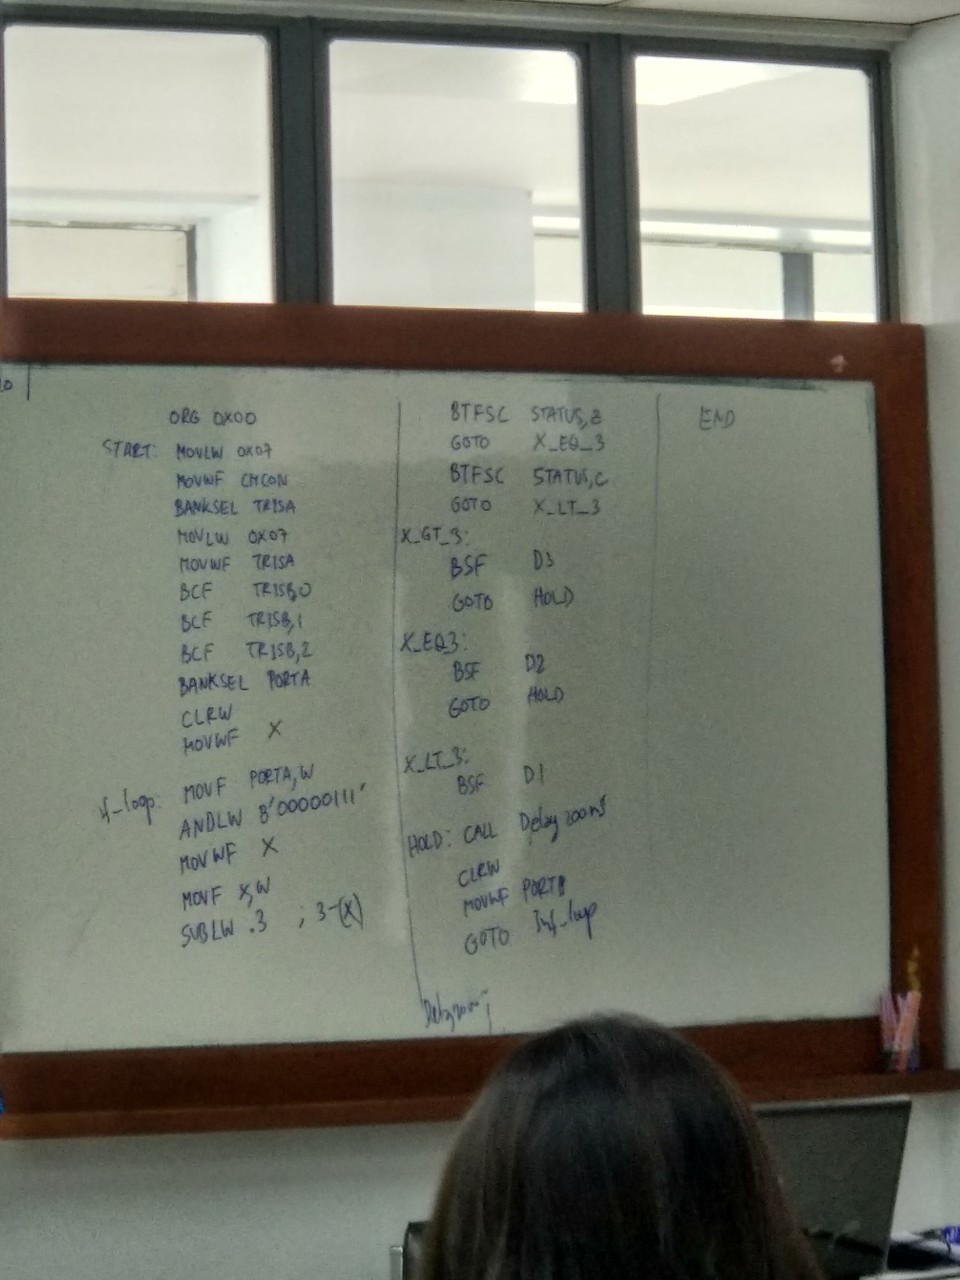 ORG 0X00
START: MOVLW 0X07
MOVWF CMCON
BANKSEL TRISA
MOVLW 0X07
MOVWF TRISA
BCF TRISB,0
BCF TRISB,1
BCF TRISB,2
BANKSEL PORTA
CLRW
MOVWF X
f_loop: MOVF PORTA,W
ANDLW B'00000111'
MOVWF X
MOVF X,W
SUBLW .3 ; 3-(X)
BTFSC STATUS,Z
GOTO X_EQ_3
BTFSC STATUS,C
GOTO X_LT_3
X_GT_3:
BSF D3
GOTO HOLD
X_EQ3:
BSF D2
GOTO HOLD
X_LT_3:
BSF D1
HOLD: CALL Delay200ms
CLRW
MOVWF PORTB
GOTO Inf_loop
END